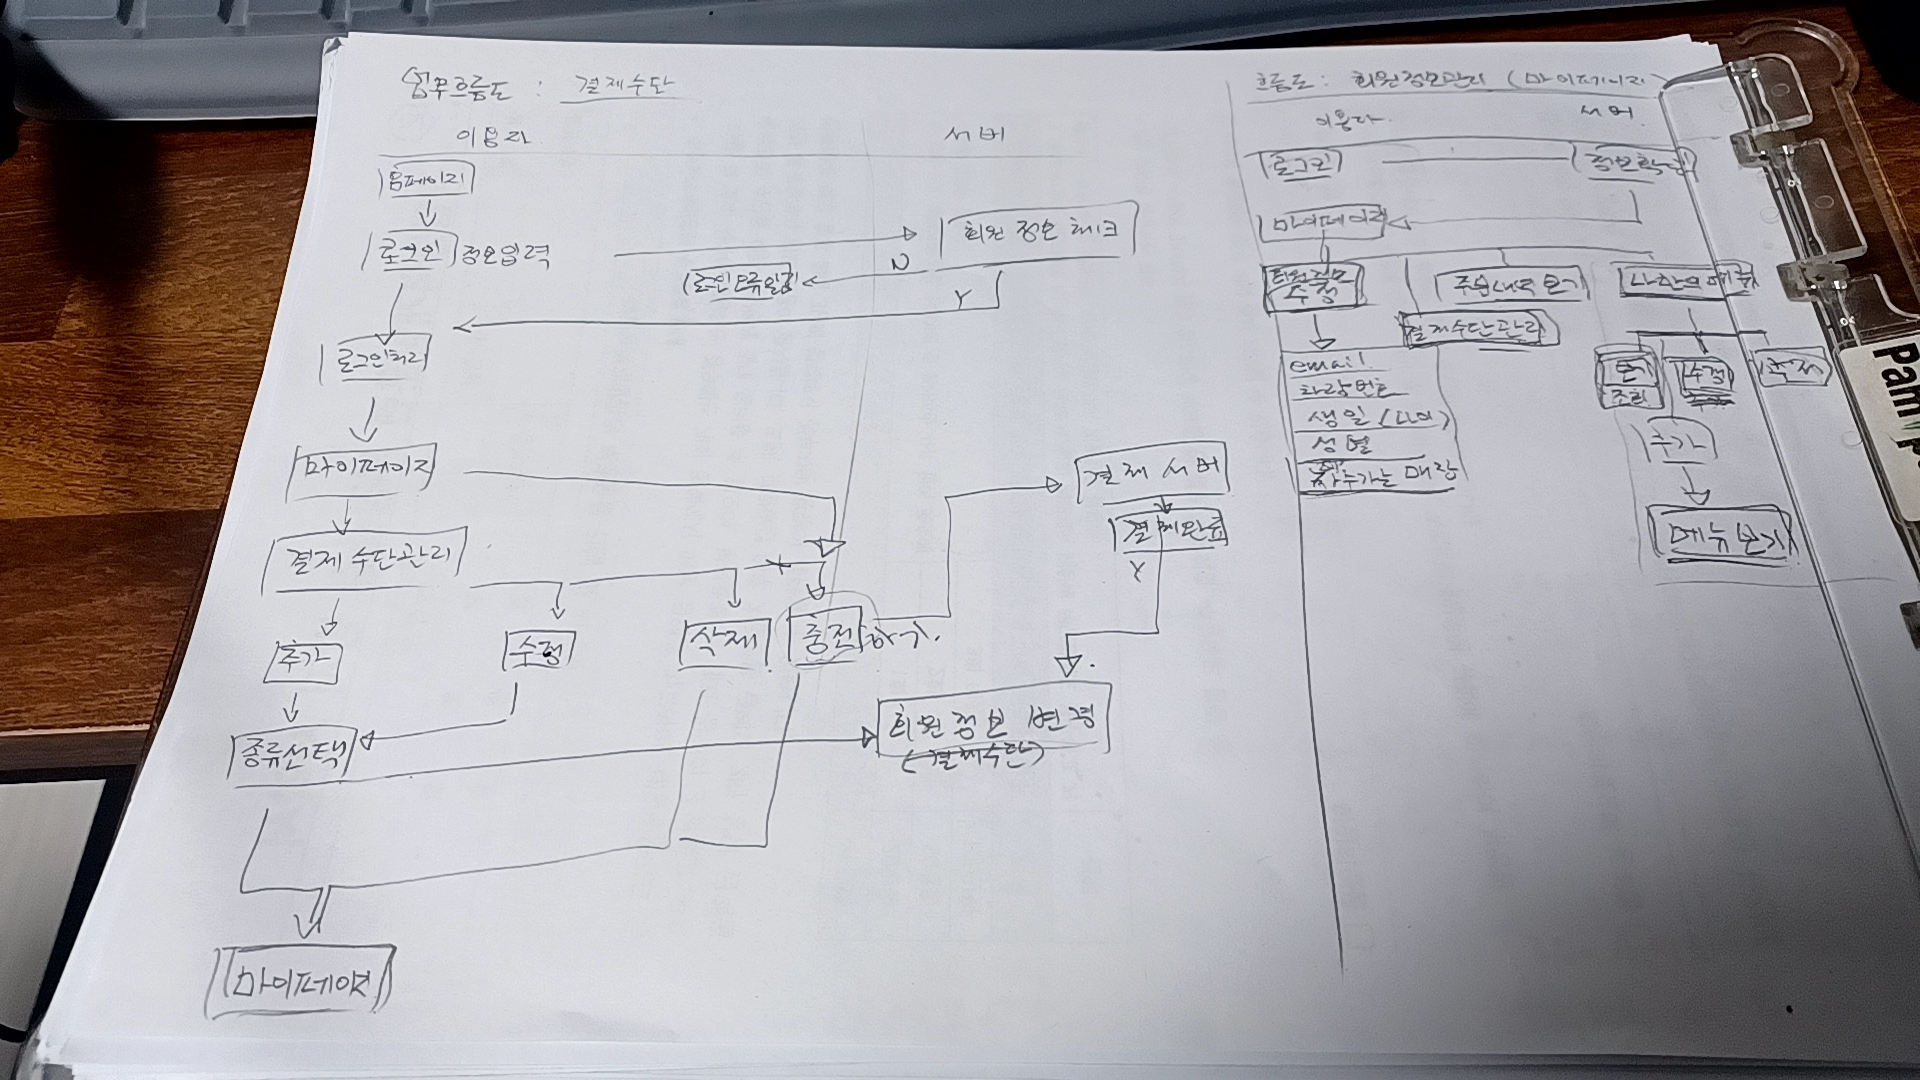 업무흐름도 : 결제수단
이용자
서버
홈페이지
로그인 정보입력
회원 정보 체크
N
로그인오류알림
Y
로그인처리
마이페이지
결제 수단관리
추가
수정
삭제
충전하기.
결제 서버
결제완료
Y
종류선택
회원 정보 변경
(결제수단)
마이페이지
흐름도 : 회원정보관리 (마이페이지)
이용자
서버
로그인
정보확인
마이페이지
회원정보
수정
주문내역 보기
결제수단관리
나만의메뉴
email
차량번호
생일 (나이)
성별
자주가는 매장
보기
조회
수정
삭제
추가
메뉴 보기
Pam